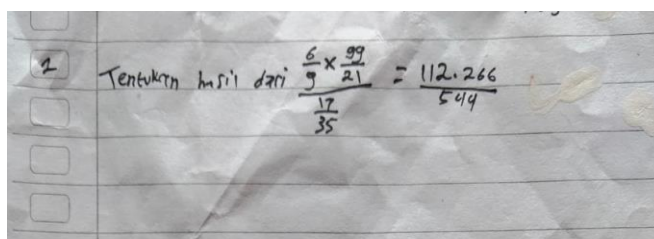 1 Tentukan hasil dari 6/9 × 99/21 / 17/35 = 112.266/544